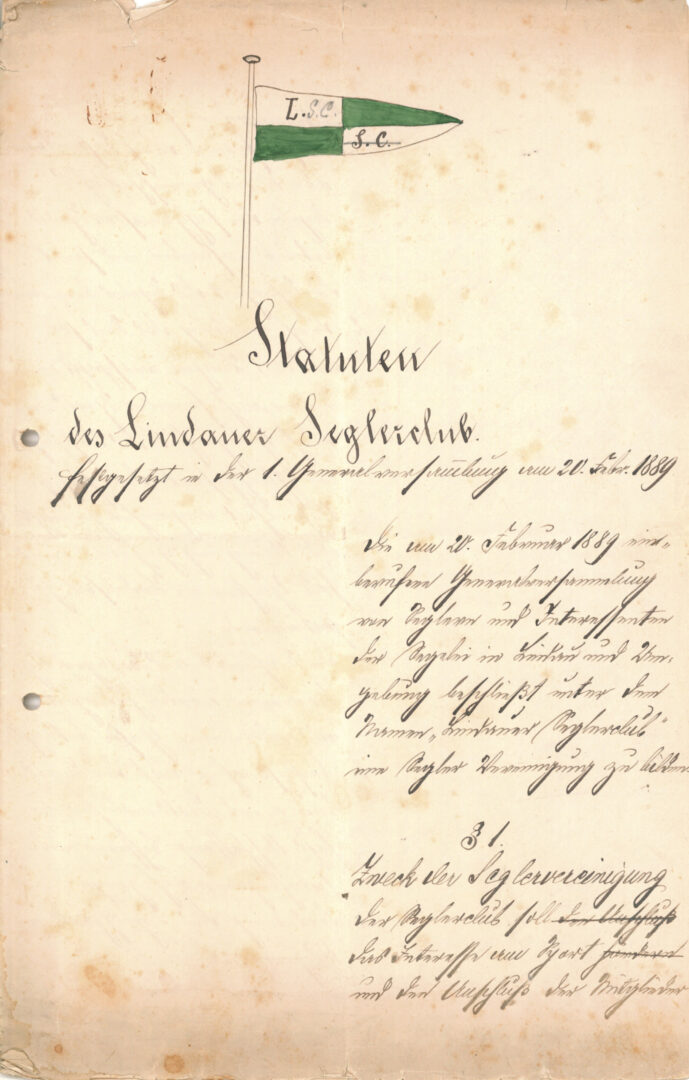 L.S.C.
S.C.
Statuten
des Lindauer Seglerclub.
festgesetzt in der 1. Generalversammlung am 20. Febr. 1889
Die am 20. Februar 1889 ein-
berufene Generalversammlung
von Seglern und Interessenten
der Segelei in Lindau und Um-
gebung beschließt unter dem
Namen „Lindauer Seglerclub“
eine Segler Vereinigung zu bilden.
§ 1.
Zweck der Seglervereinigung
Der Seglerclub soll den Anschluß
das Interesse am Sport fördern
und den Anschluß der Mitglieder